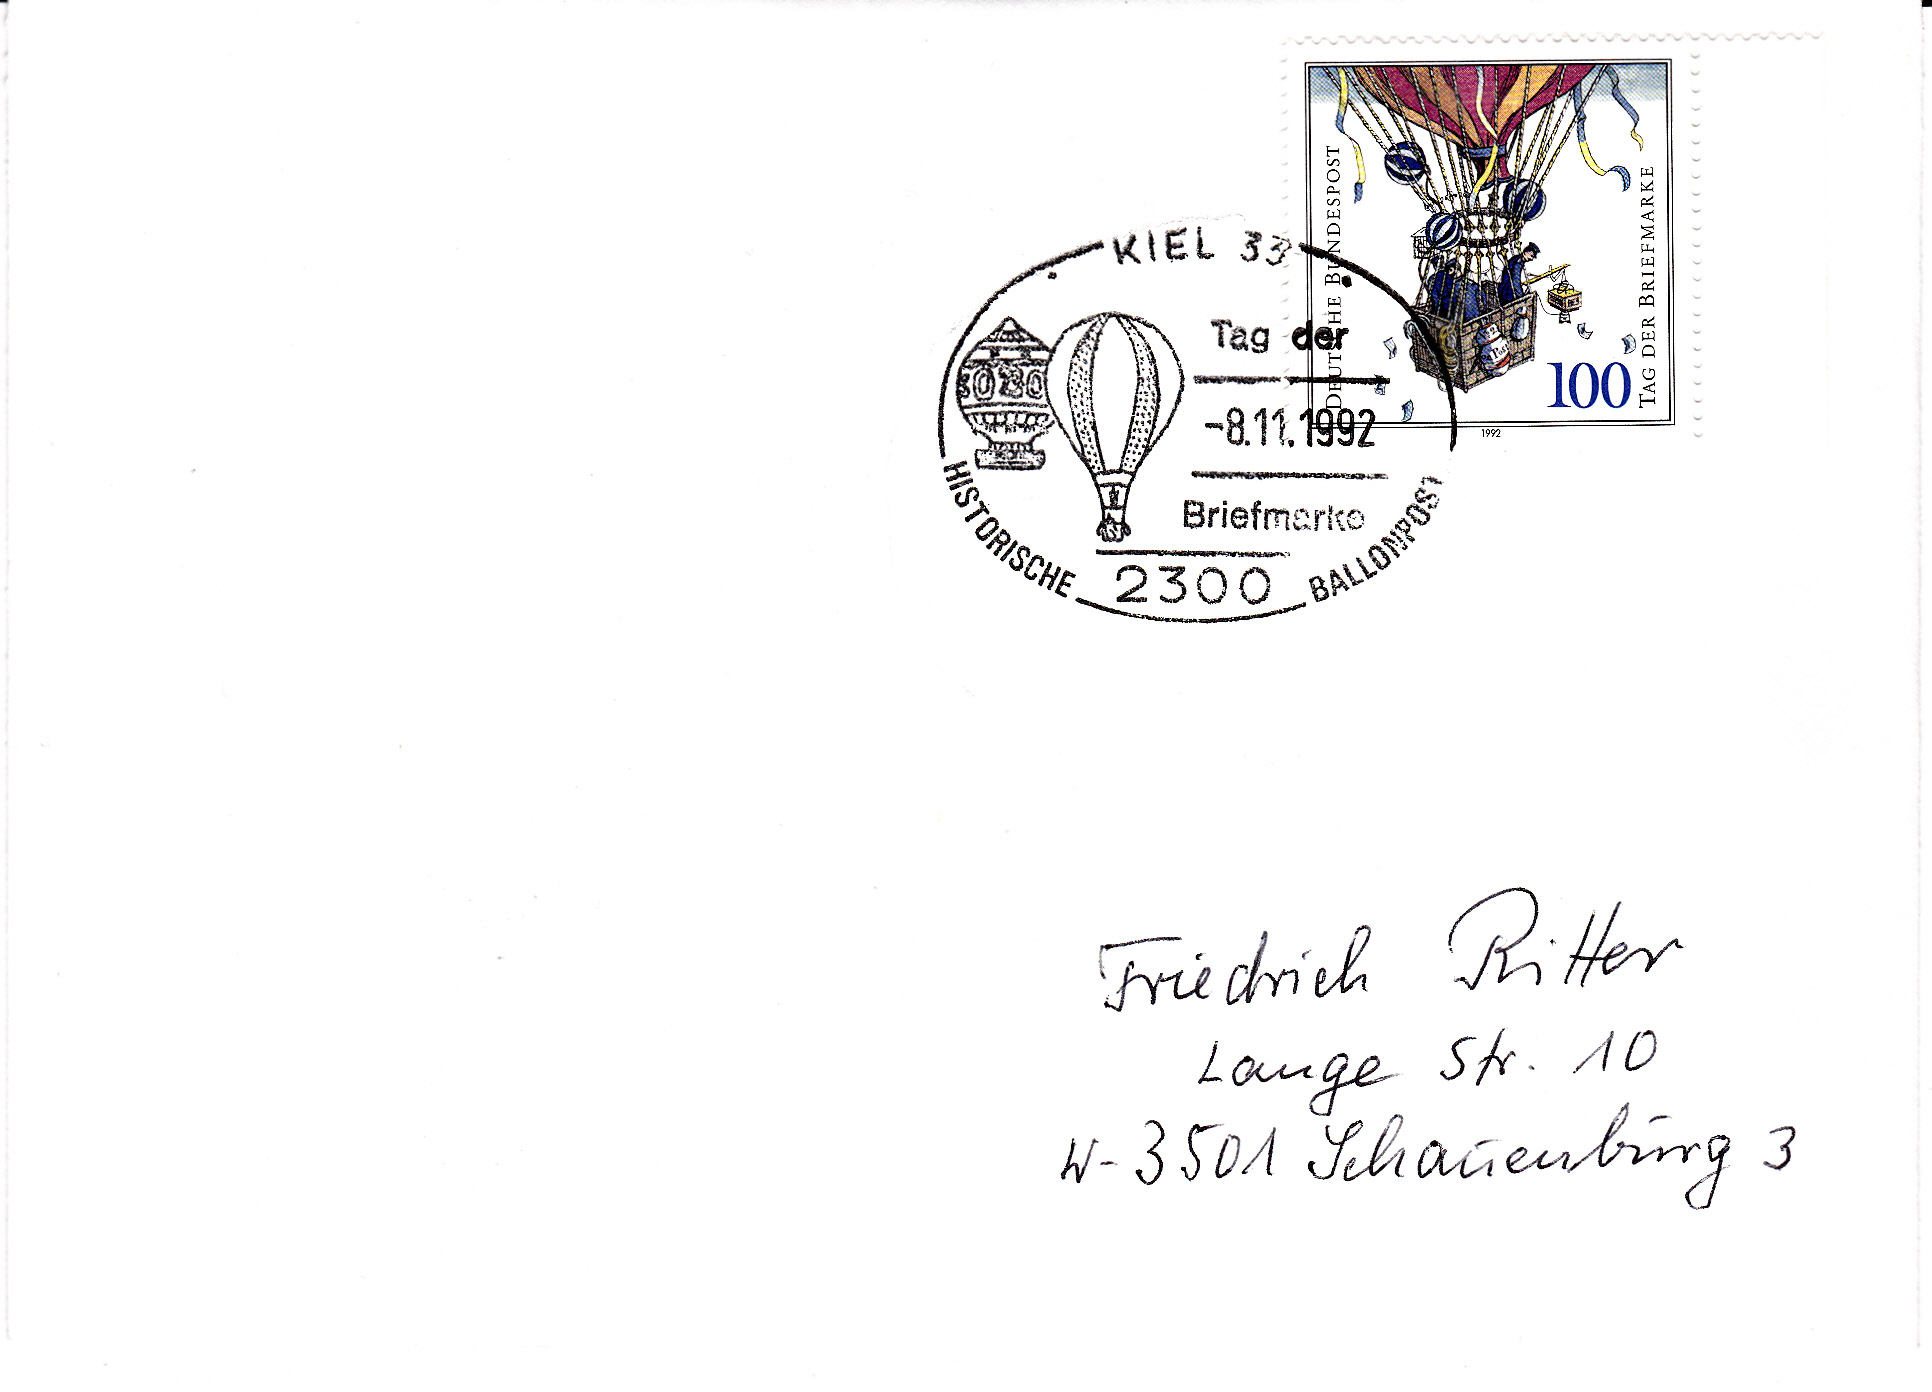 DEUTSCHE BUNDESPOST
TAG DER BRIEFMARKE
100
1992
KIEL 33
Tag der
-8.11.1992
Briefmarke
2300
HISTORISCHE BALLONPOST
Friedrich Ritter
Lange Str. 10
W-3501 Schauenburg 3